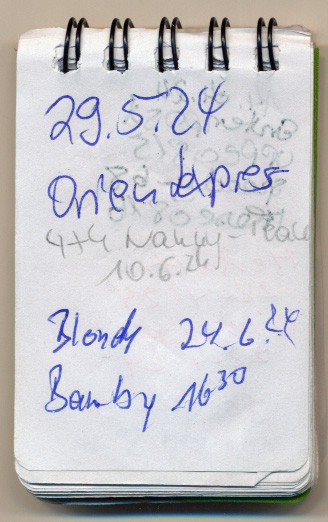 29.5.24
Orien expres
4+4 Nanny-
10.6.24
Blond 24.6.24
Bamby 16³⁰